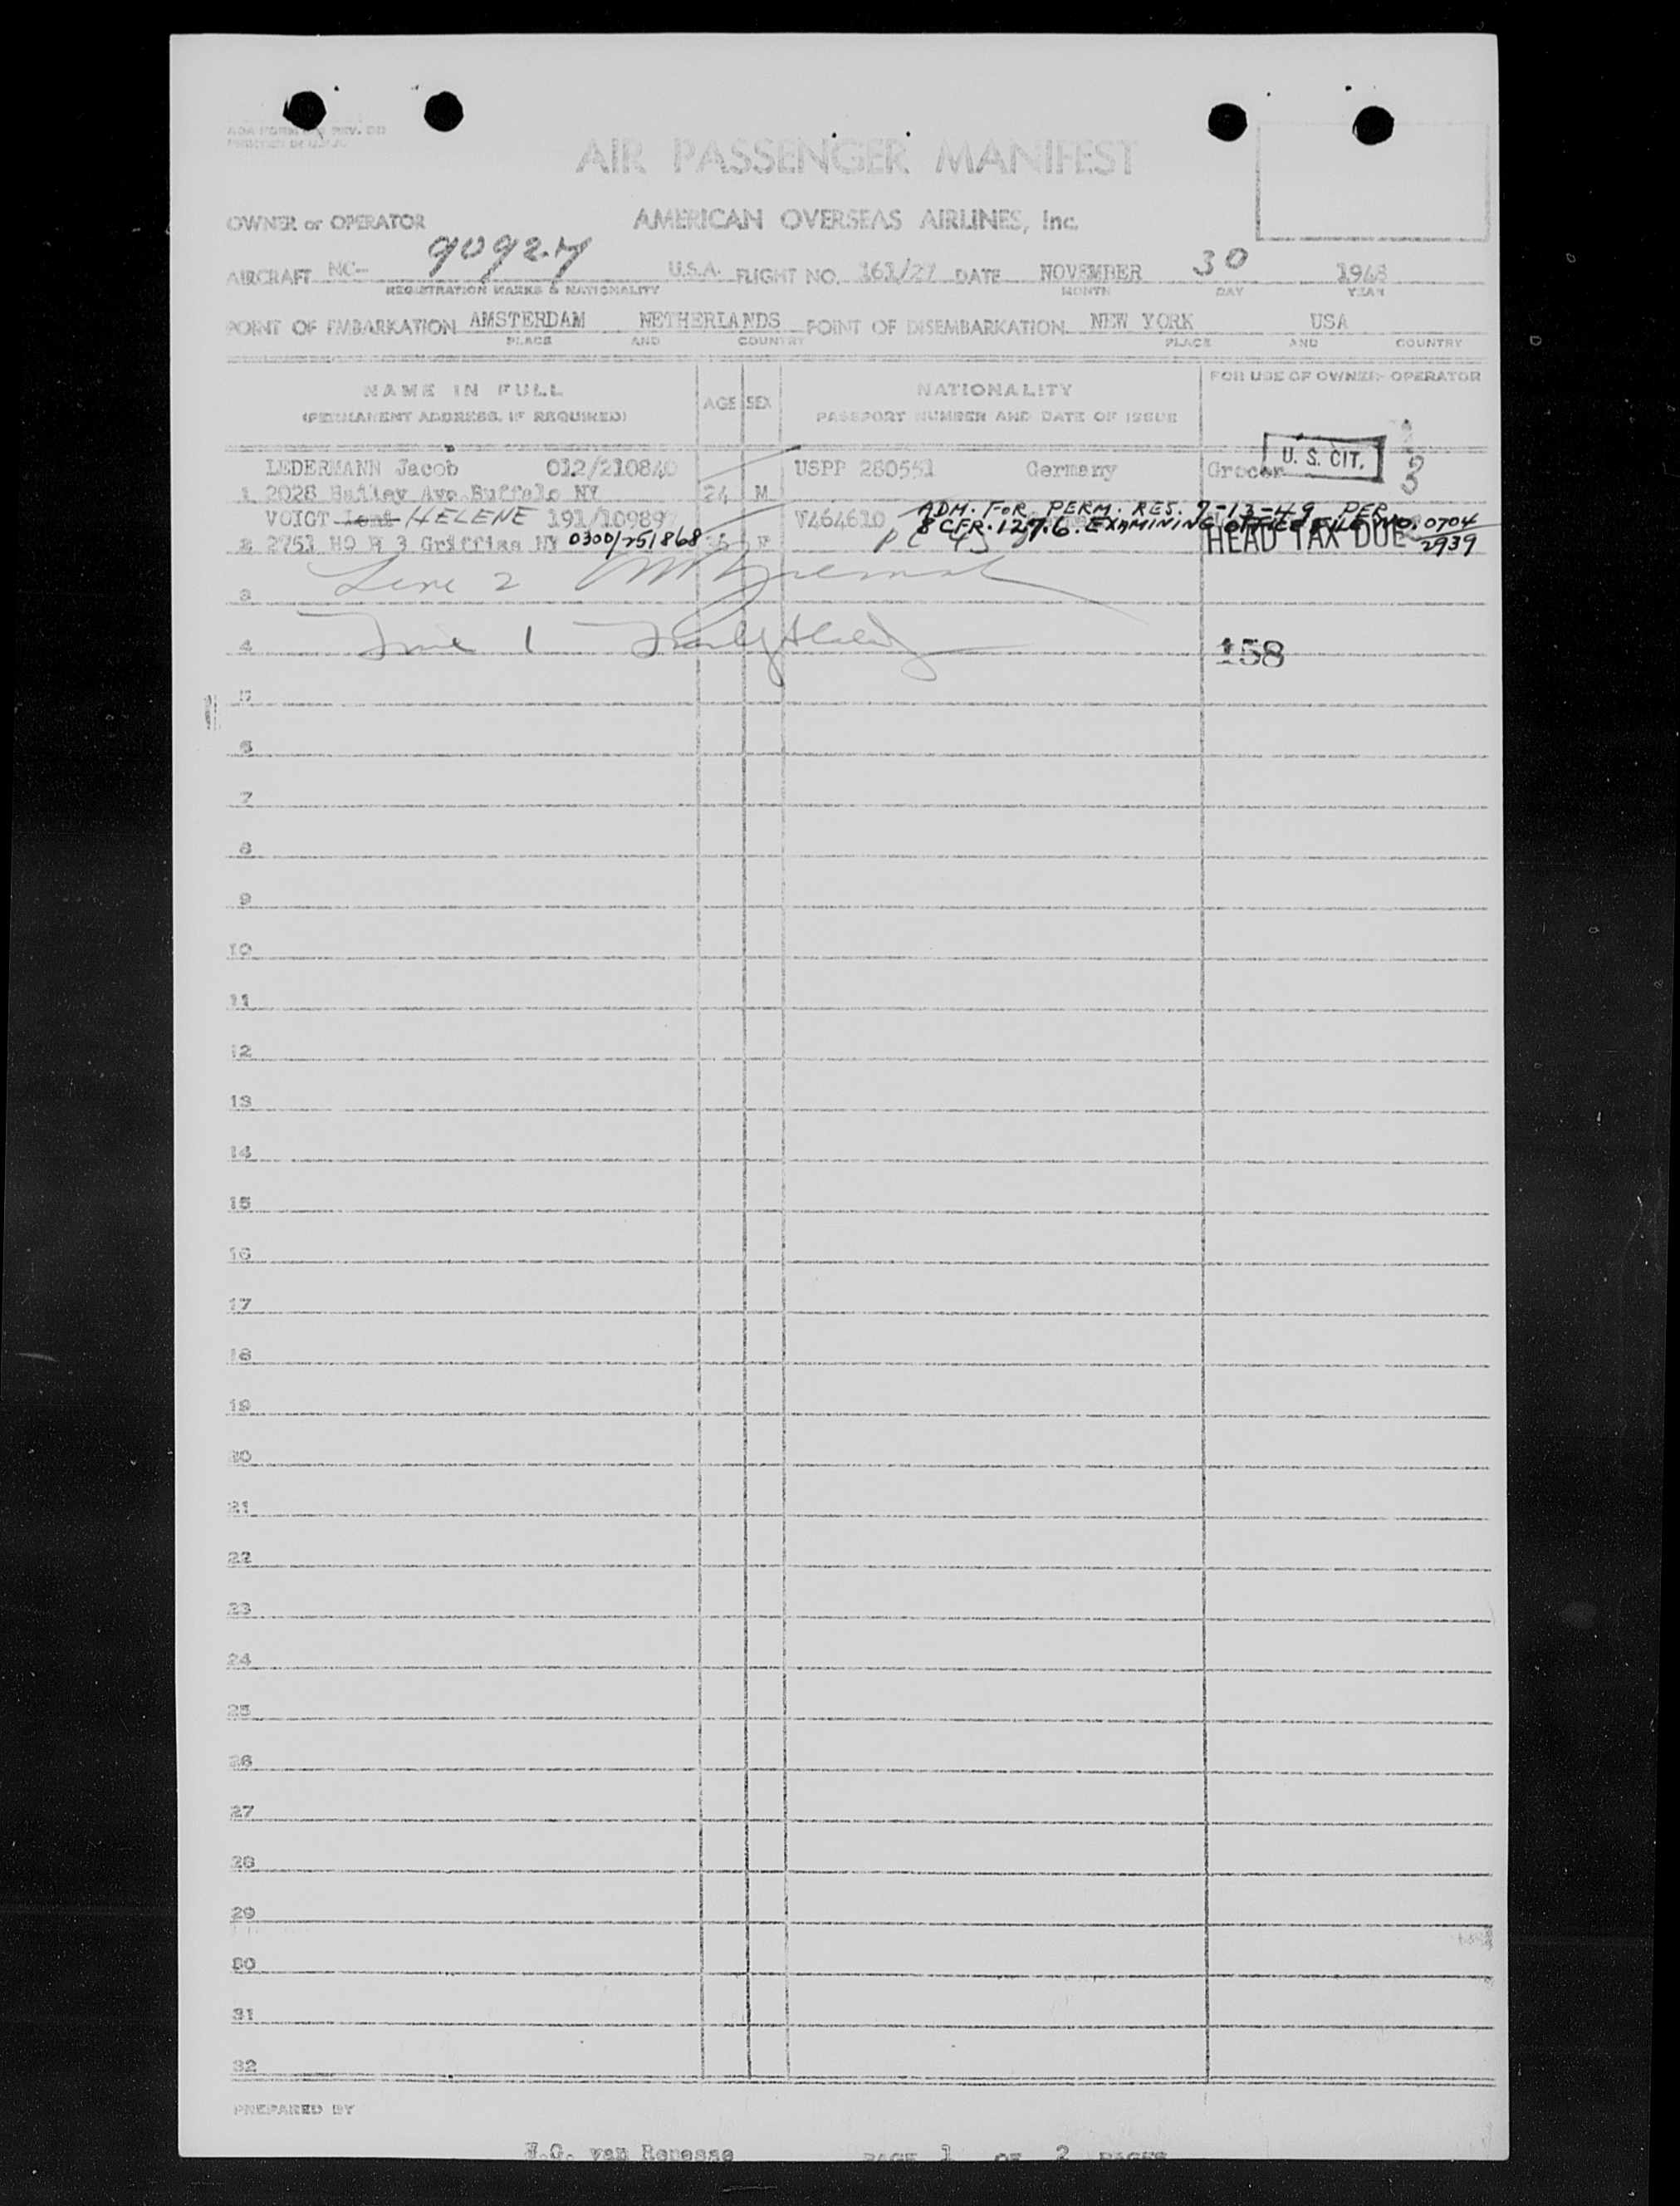 AIR PASSENGER MANIFEST
OWNER or OPERATOR AMERICAN OVERSEAS AIRLINES, Inc.
AIRCRAFT NC- 90924 U.S.A. FLIGHT NO. 161/27 DATE NOVEMBER 30 1948
REGISTRATION MARKS & NATIONALITY MONTH DAY YEAR
POINT OF EMBARKATION AMSTERDAM NETHERLANDS POINT OF DISEMBARKATION NEW YORK USA
PLACE AND COUNTRY PLACE AND COUNTRY
NAME IN FULL AGE SEX NATIONALITY FOR USE OF OWNER OPERATOR
(PERMANENT ADDRESS, IF REQUIRED) PASSPORT NUMBER AND DATE OF ISSUE
LEDERMANN Jacob 012/210840 USPP 280551 Germany Grocer U. S. CIT. 3
1 2028 Bailey Ave Buffalo NY 24 M
VOIGT HELENE 191/10989 V464610 ADM. FOR PERM. RES. 7-13-49 PER
8 CFR. 127.6. EXAMINING OFFICE FILE NO. 0704
2939
2 2751 HQ 3 Griffiss NY 0300/251868 F HEAD TAX DUE
3 Line 2
4 Line 1 158
5
6
7
8
9
10
11
12
13
14
15
16
17
18
19
20
21
22
23
24
25
26
27
28
29
30
31
32
PREPARED BY
van Renesse PAGE 1 OF 2 PAGES